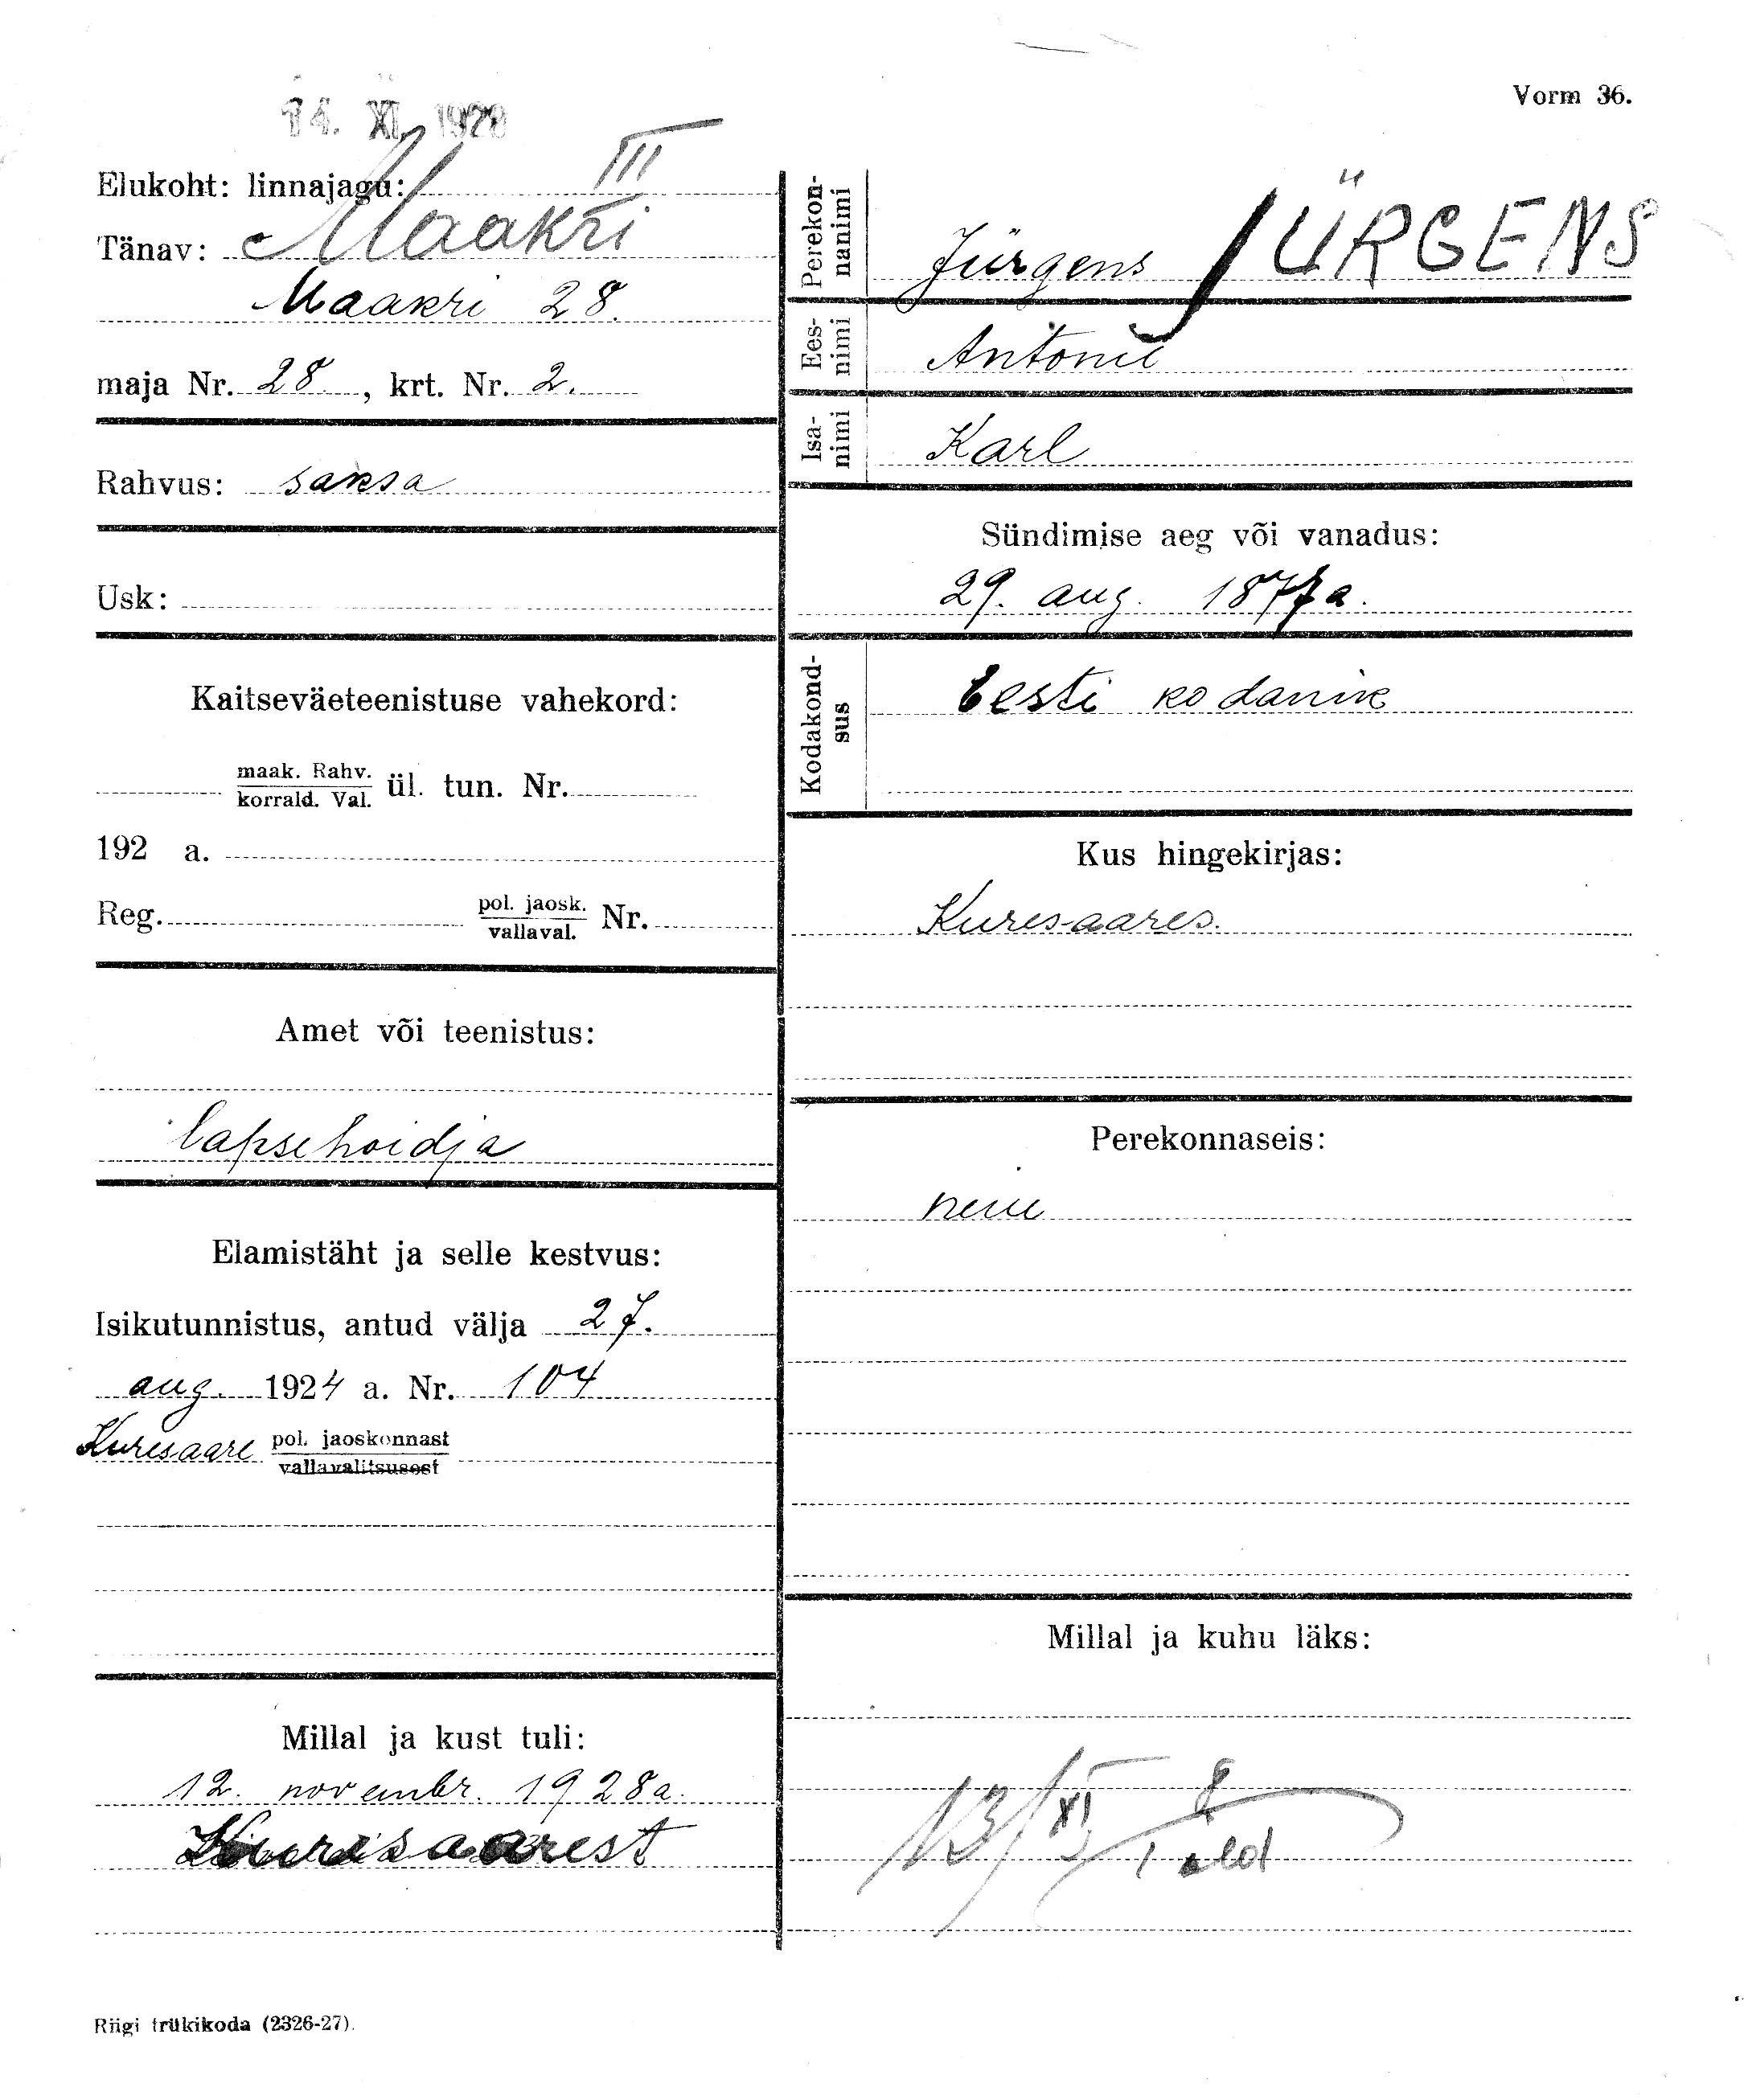 Vorm 36.
14. XI 1928
Elukoht: linnajagu: III
Tänav: Maakri
Maakri 28.
maja Nr. 28, krt. Nr. 2.
Rahvus: saksa
Usk:
Kaitseväeteenistuse vahekord:
maak. Rahv.
korrald. Val. ül. tun. Nr.
192 a.
Reg. pol. jaosk.
vallaval. Nr.
Amet või teenistus:
lapsehoidja
Elamistäht ja selle kestvus:
Isikutunnistus, antud välja 27.
aug. 1924 a. Nr. 104
Kuresaare pol. jaoskonnast
vallavalitsusest
Millal ja kust tuli:
12. novembr. 1928 a.
Kuresaarest
Perekon-
nanimi Jürgens JÜRGENS
Ees-
nimi Antonie
Isa-
nimi Karl
Sündimise aeg või vanadus:
29. aug. 1877 a.
Kodakond-
sus Eesti kodanik
Kus hingekirjas:
Kuresaares.
Perekonnaseis:
neiu
Millal ja kuhu läks:
13/XI
Riigi trükikoda (2326-27).